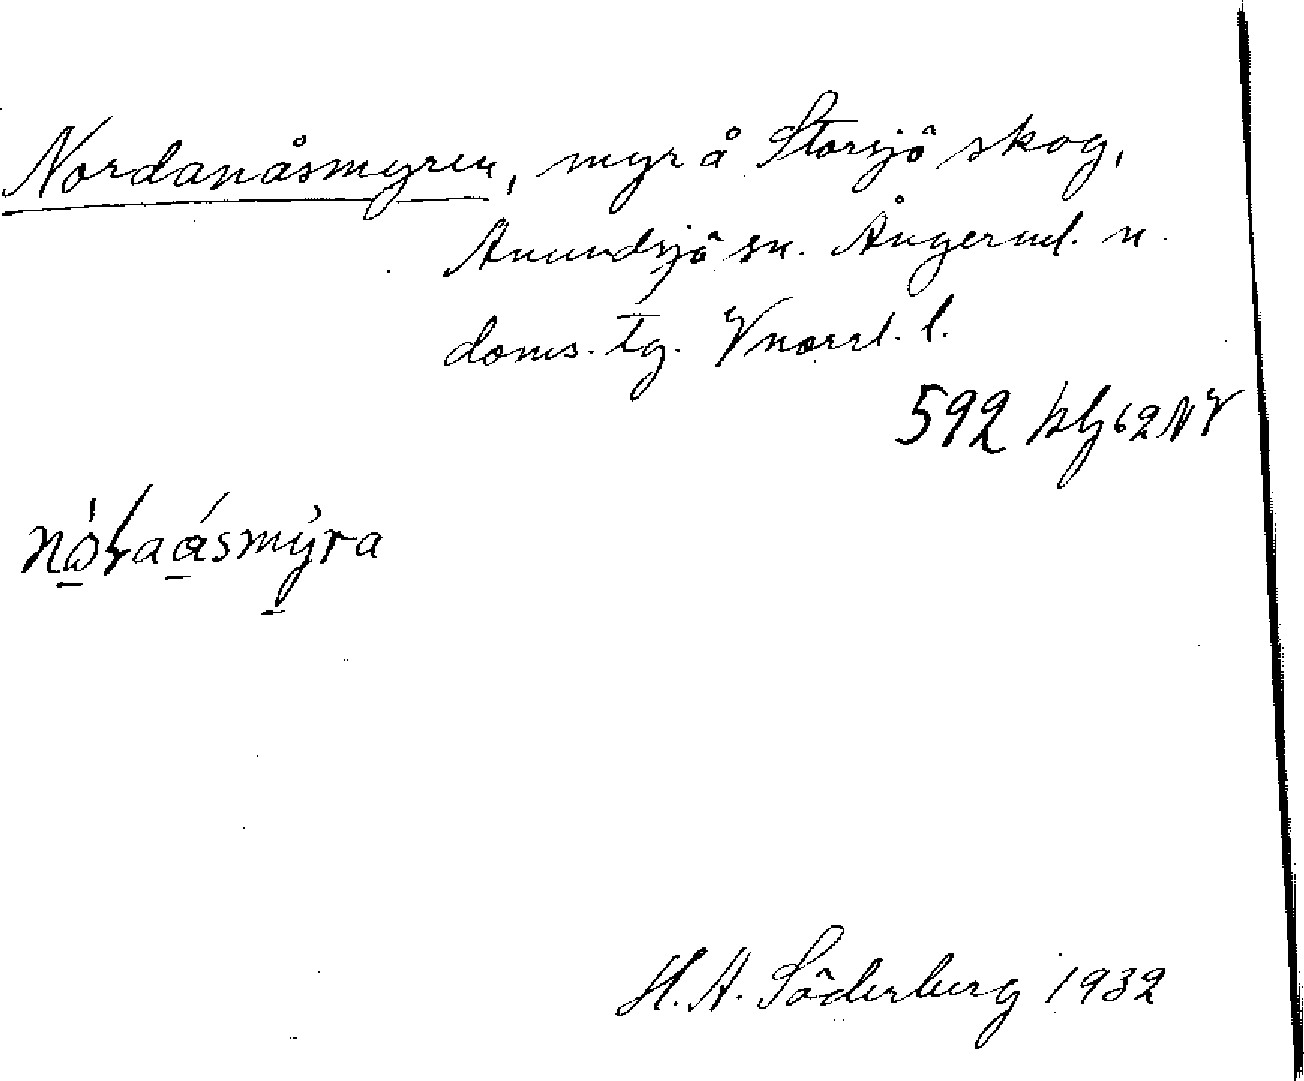 Nordanåsmyren, myr å Storsjö skog,
Anundsjö sn. Ångerml. n.
doms. tg. Vnorrl. l.
592 hlg 62 NV
H. A. Söderberg 1932